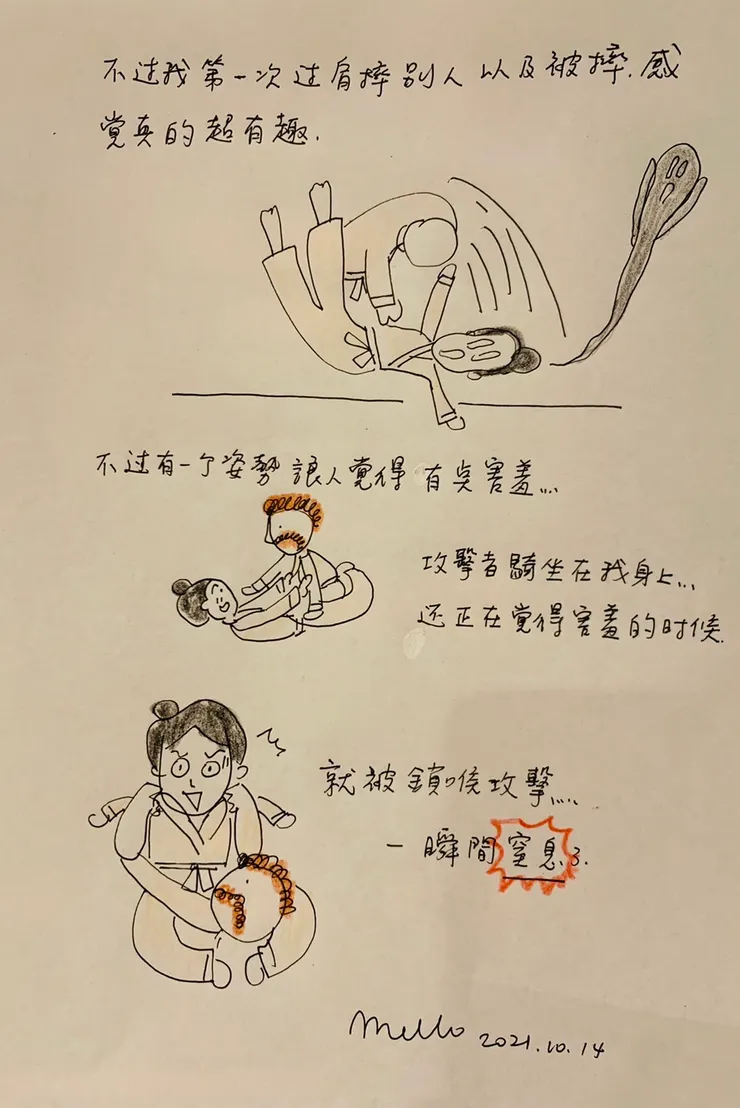 不过我第一次过肩摔别人以及被摔.感
觉真的超有趣.
不过有一个姿勢讓人覺得有点害羞...
攻擊者騎坐在我身上...
还正在覺得害羞的时候.
就被鎖喉攻擊....
一瞬間窒息了.
Mello 2021.10.14